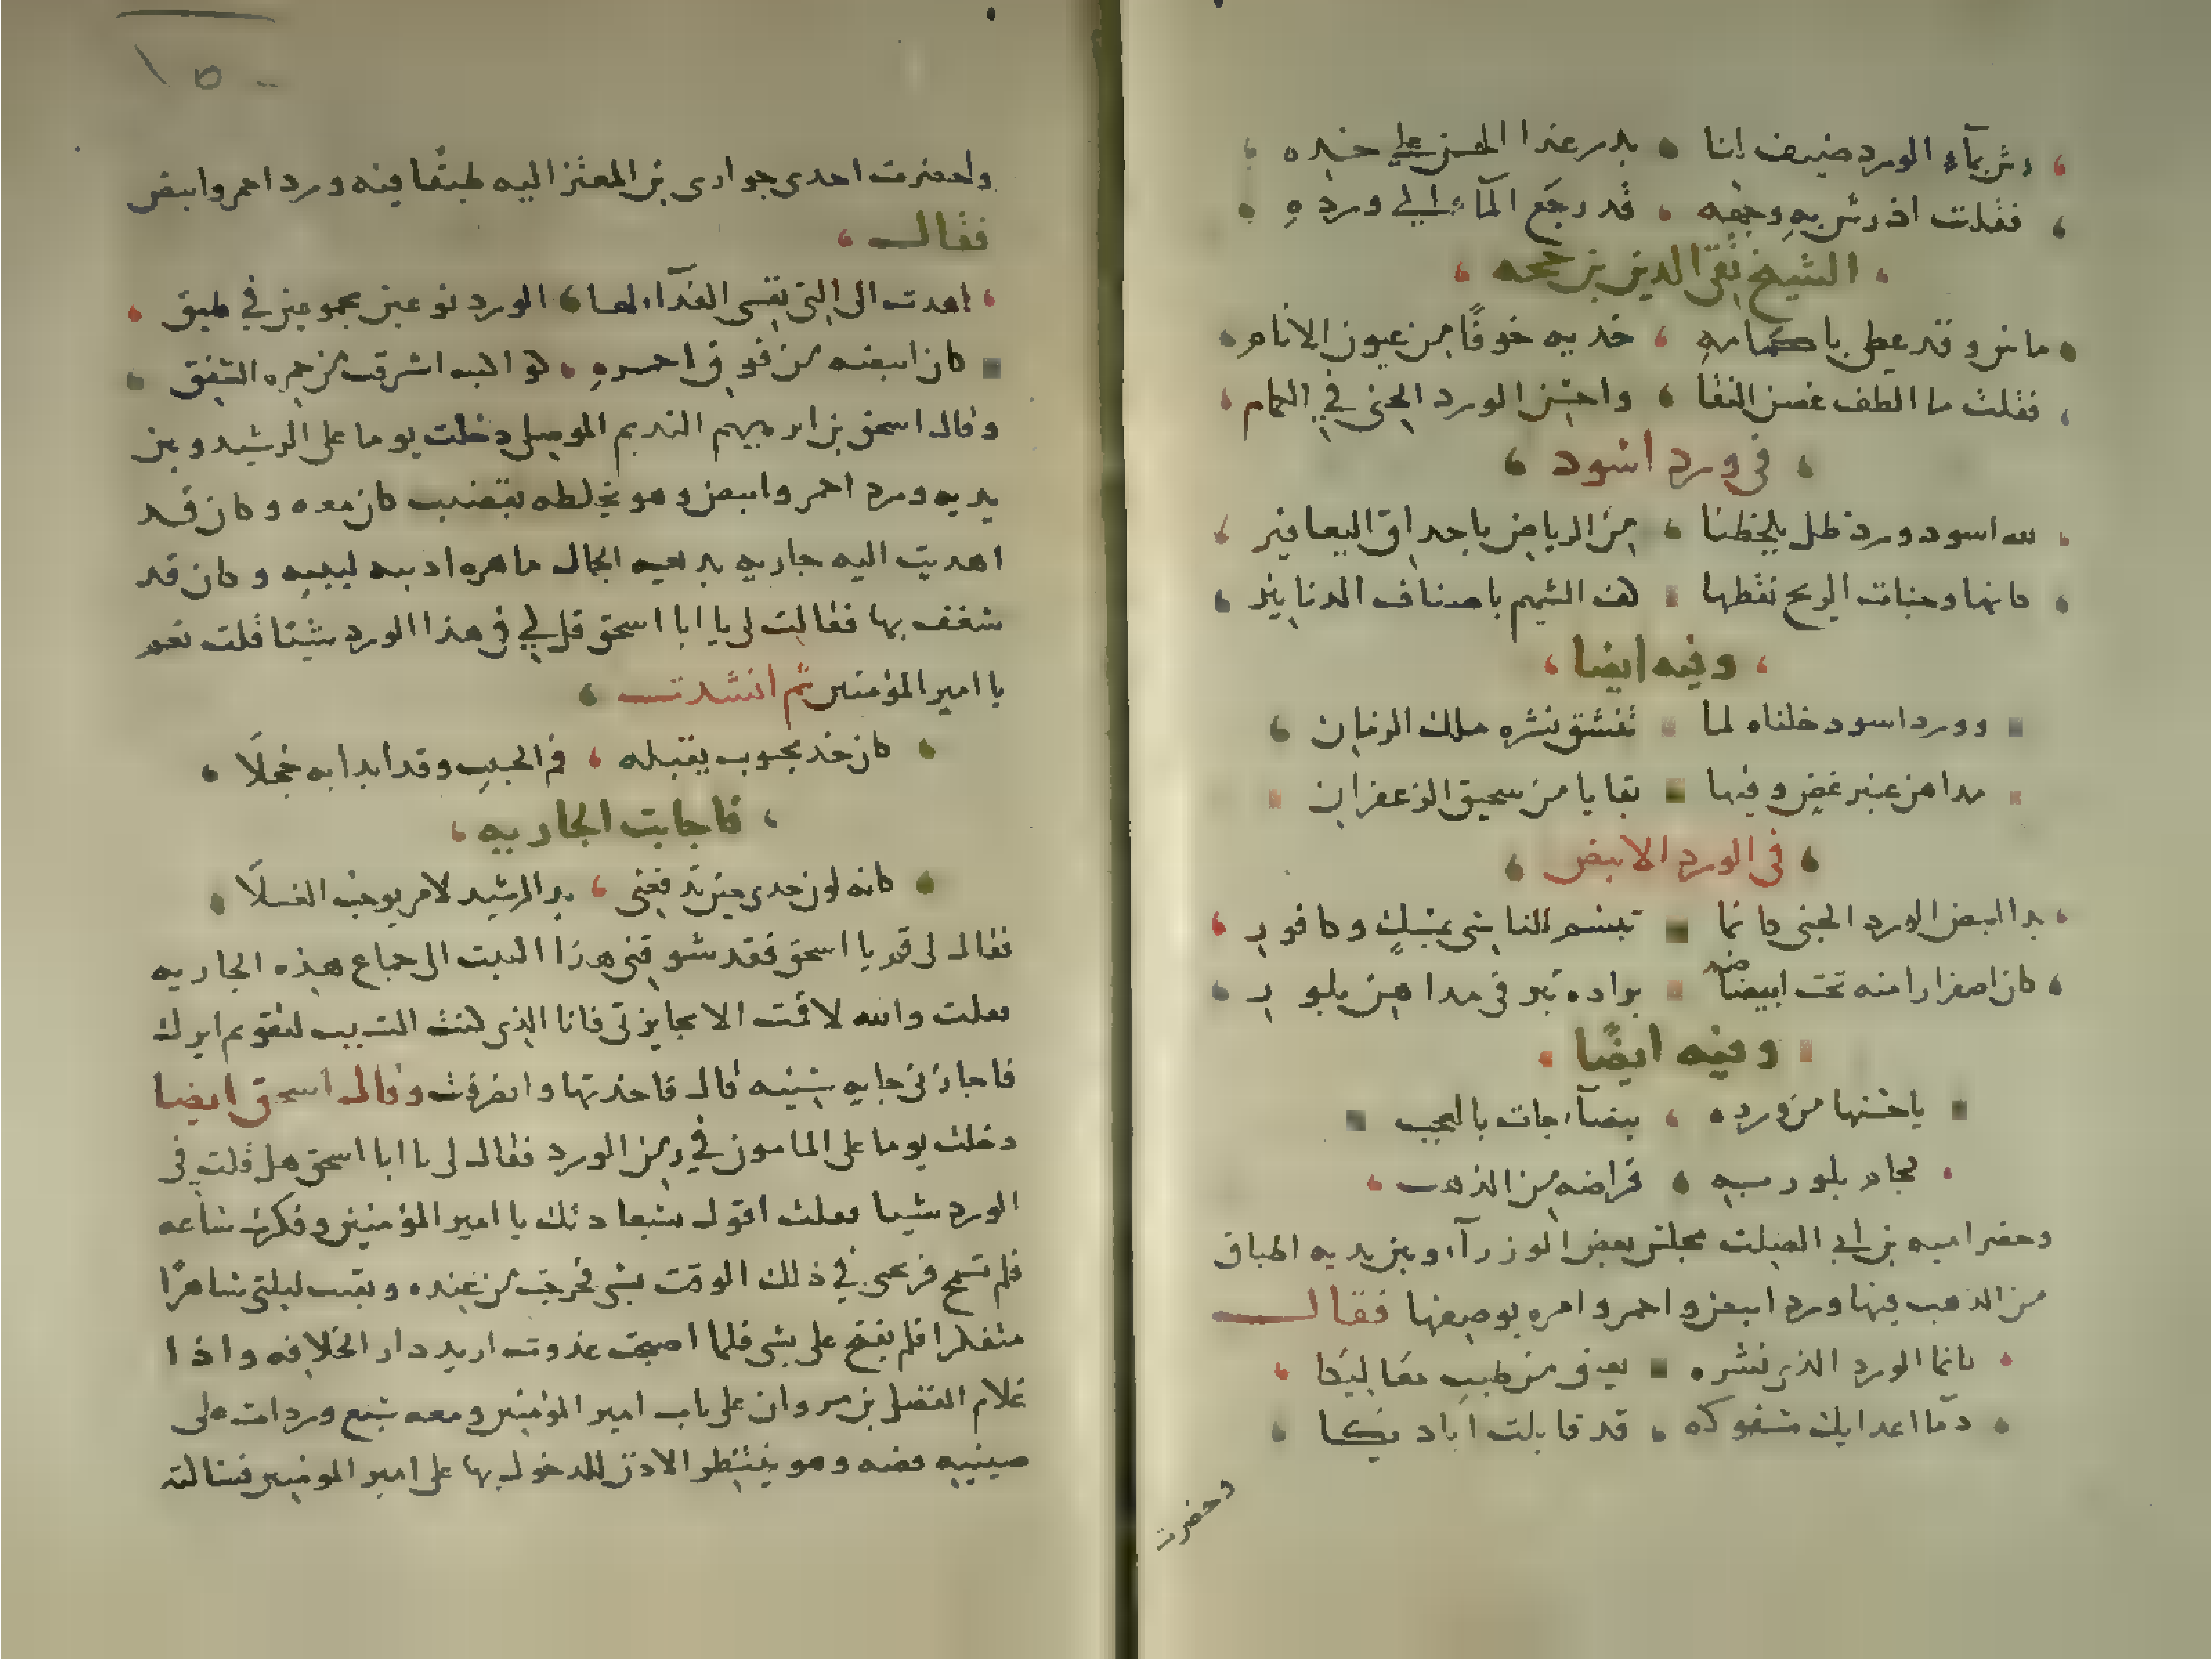 رش بماء الورد ضيف لنا ، بدر غدا الحسن على خده
فقلت اذ رش به وجهه ، قد رجع الماء الى ورده
الشيخ تقي الدين بن حجه
ماس وقد غطى باكمامه ، خديه خوفًا من عيون الانام
فقلت ما الطف غصن النقا ، واحسن الورد الجني في الكمام
في ورد اسود
لله اسود ورد ظل يلحظنا ، من الرياض باحداق اليعافير
كانها وجنات الريح نقطها ، كف باصناف الدنانير
وفيه ايضا
وورد اسود خلناه لما ، تنشق نشره ملك الزمان
مداهن عنبر غض وفيها ، بقايا من سحيق الزعفران
في الورد الابيض
بدا ابيض الورد الجني كانما ، تبسم للناشي بمسك وكافور
كان اصفرارا منه تحت ابيضاضه ، براده تبر في مداهن بلور
وفيه ايضًا
يا حسنها من ورده ، بيضآء جات بالعجب
كجام بلور به ، قراضه من الذهب
وحضر اميه بن ابي الصلت مجلس بعض الوزرآء وبين يديه اطباق
من الذهب فيها ورد ابيض واحمر وامره بوصفها فقال
كانما الورد الذي نشره ، يعبق من طيب معاليكا
دما اعدايك مسفوكه ، قد قابلت اياديكا
وحضرت
١٥
واحضرت احدى جواري بن المعتز اليه طبقا فيه ورد احمر وابيض
فقال
اهدت الي التي نفسي الفدآء لها ، الورد نوعين مجموعين في طبق
كان ابيضه من فوق احمره ، كواكب اشرقت من حمره الشفق
وقال اسحق بن ابرهيم النديم الموصلي دخلت يوما على الرشيد وبين
يديه ورد احمر وابيض وهو يخلطه بقضيب كان معه وكان قد
اهديت اليه جاريه بديعه الجمال ماهره اديبه لبيبه وكان قد
شغف بها فقالت لي يا ابا اسحق قل لي في هذا الورد شيئا قلت نعم
يا امير المؤمنين ثم انشدت
كان خد محبوب يقبله ، فم الحبيب وقد ابدا به خجلًا
فاجابت الجاريه
كانه لون خدي حين تدفعني ، يد الرشيد لامر يوجب الغسلًا
فقال لي قم يا اسحق فقد شوقني هذا البيت الى جماع هذه الجاريه
فقلت والله لا قمت الا بجايزتي فانا الذي كنت السبب لتقويم ايرك
فاجازني جايه سنيه قال فاخذتها وانصرفت وقال اسحق ايضا
دخلت يوما على المامون في زمن الورد فقال لي يا ابا اسحق هل قلت في
الورد شيا فقلت اقول بسعادتك يا امير المؤمنين وفكرت ساعه
فلم تسمح قريحتي في ذلك الوقت بشي فخرجت من عنده وبقيت ليلتي ساهرًا
متفكرا فلم يفتح علي بشي فلما اصبحت غدوت اريد دار الخلافه واذا
غلام الفضل بن مروان على باب امير المؤمنين ومعه سبع وردات على
صينيه فضه وهو ينتظر الاذن للدخول بها على امير المومنين فسالته